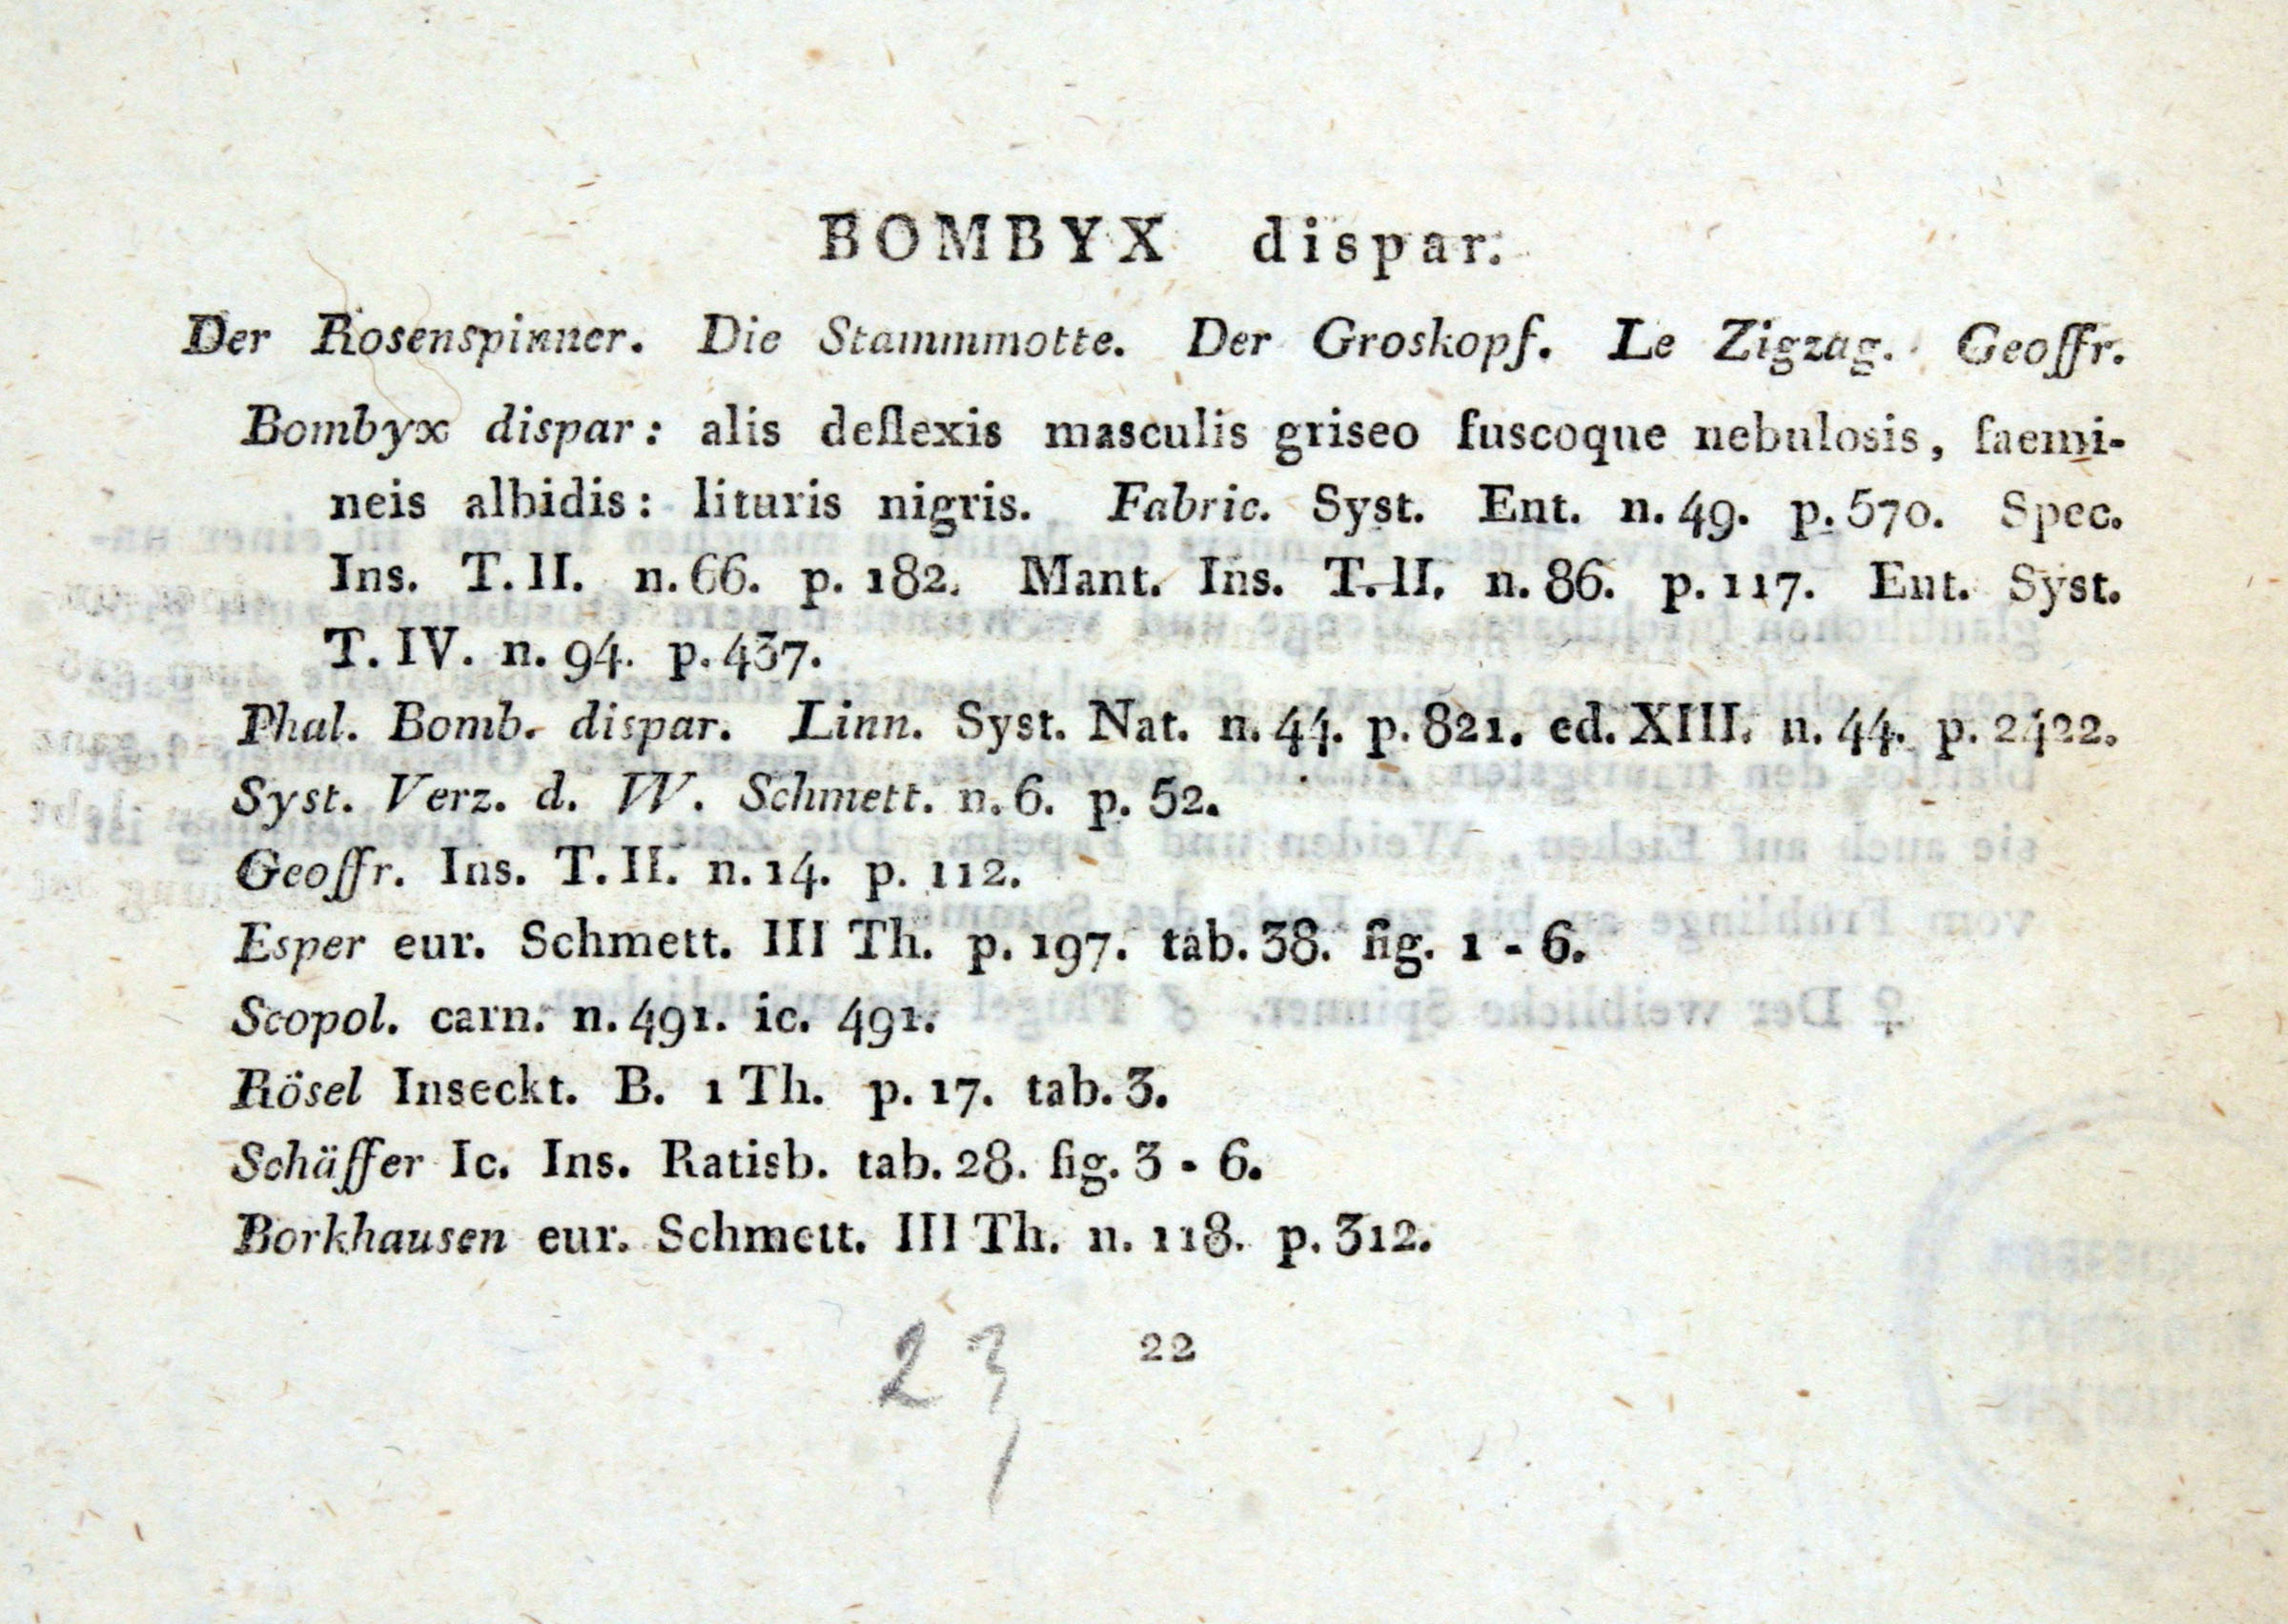 BOMBYX dispar.
Der Rosenspinner. Die Stammmotte. Der Groskopf. Le Zigzag. Geoffr.
Bombyx dispar: alis deflexis masculis griseo fuscoque nebulosis, faemi-
neis albidis: lituris nigris. Fabric. Syst. Ent. n. 49. p. 570. Spec.
Ins. T. II. n. 66. p. 182. Mant. Ins. T. II. n. 86. p. 117. Ent. Syst.
T. IV. n. 94. p. 437.
Phal. Bomb. dispar. Linn. Syst. Nat. n. 44. p. 821. ed. XIII. n. 44. p. 2422.
Syst. Verz. d. W. Schmett. n. 6. p. 52.
Geoffr. Ins. T. II. n. 14. p. 112.
Esper eur. Schmett. III Th. p. 197. tab. 38. fig. 1 - 6.
Scopol. carn. n. 491. ic. 491.
Rösel Inseckt. B. 1 Th. p. 17. tab. 3.
Schäffer Ic. Ins. Ratisb. tab. 28. fig. 3 - 6.
Borkhausen eur. Schmett. III Th. n. 118. p. 312.
23 22